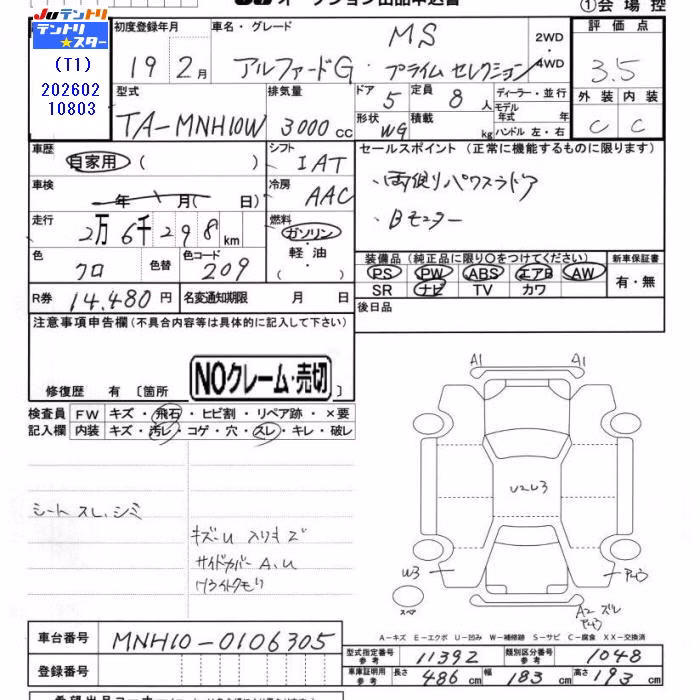 オークション出品申込書
①会場控
JU テントリ
テントリ★スター
(T1)
202602
10803
初度登録年月
19年 2月
車名・グレード
MS
アルファードG・プライムセレクション
2WD・4WD
評価点
3.5
外装 内装
C C
型式
TA-MNH10W
排気量
3000cc
ドア 5
定員 8人
形状 WG
積載 kg
ディーラー・並行
モデル年式 年式
ハンドル 左・右
車歴
自家用 ( )
シフト
IAT
車検
年 月( 日)
冷房
AAC
走行
2万6千298km
燃料
ガソリン・軽油
( )
色
クロ
色替
色コード
209
R券 14,480円
名変通知期限 月 日
セールスポイント(正常に機能するものに限ります)
・両側パワスラドア
・Bモニター
装備品(純正品に限り○をつけてください)
新車保証書
PS PW ABS エアB AW
SR ナビ TV カワ
有・無
後日品
注意事項申告欄(不具合内容等は具体的に記入して下さい)
NOクレーム・売切
修復歴 有 〔箇所 〕
検査員記入欄
FW キズ・飛石・ヒビ割・リペア跡・×要
内装 キズ・汚レ・コゲ・穴・スレ・キレ・破レ
シートスレ、シミ
キズーU 入リキズ
サイドカバーA、U
Fライトクモリ
A1 A1
U2 U3
W3
スペア
A2 ズレ
A-キズ E-エクボ U-凹み W-補修跡 S-サビ C-腐食 XX-交換済
車台番号 MNH10-0106305
登録番号
型式指定番号 参考 11392
類別区分番号 参考 1048
車庫証明用 参考 長さ 486cm 幅 183cm 高さ 193cm